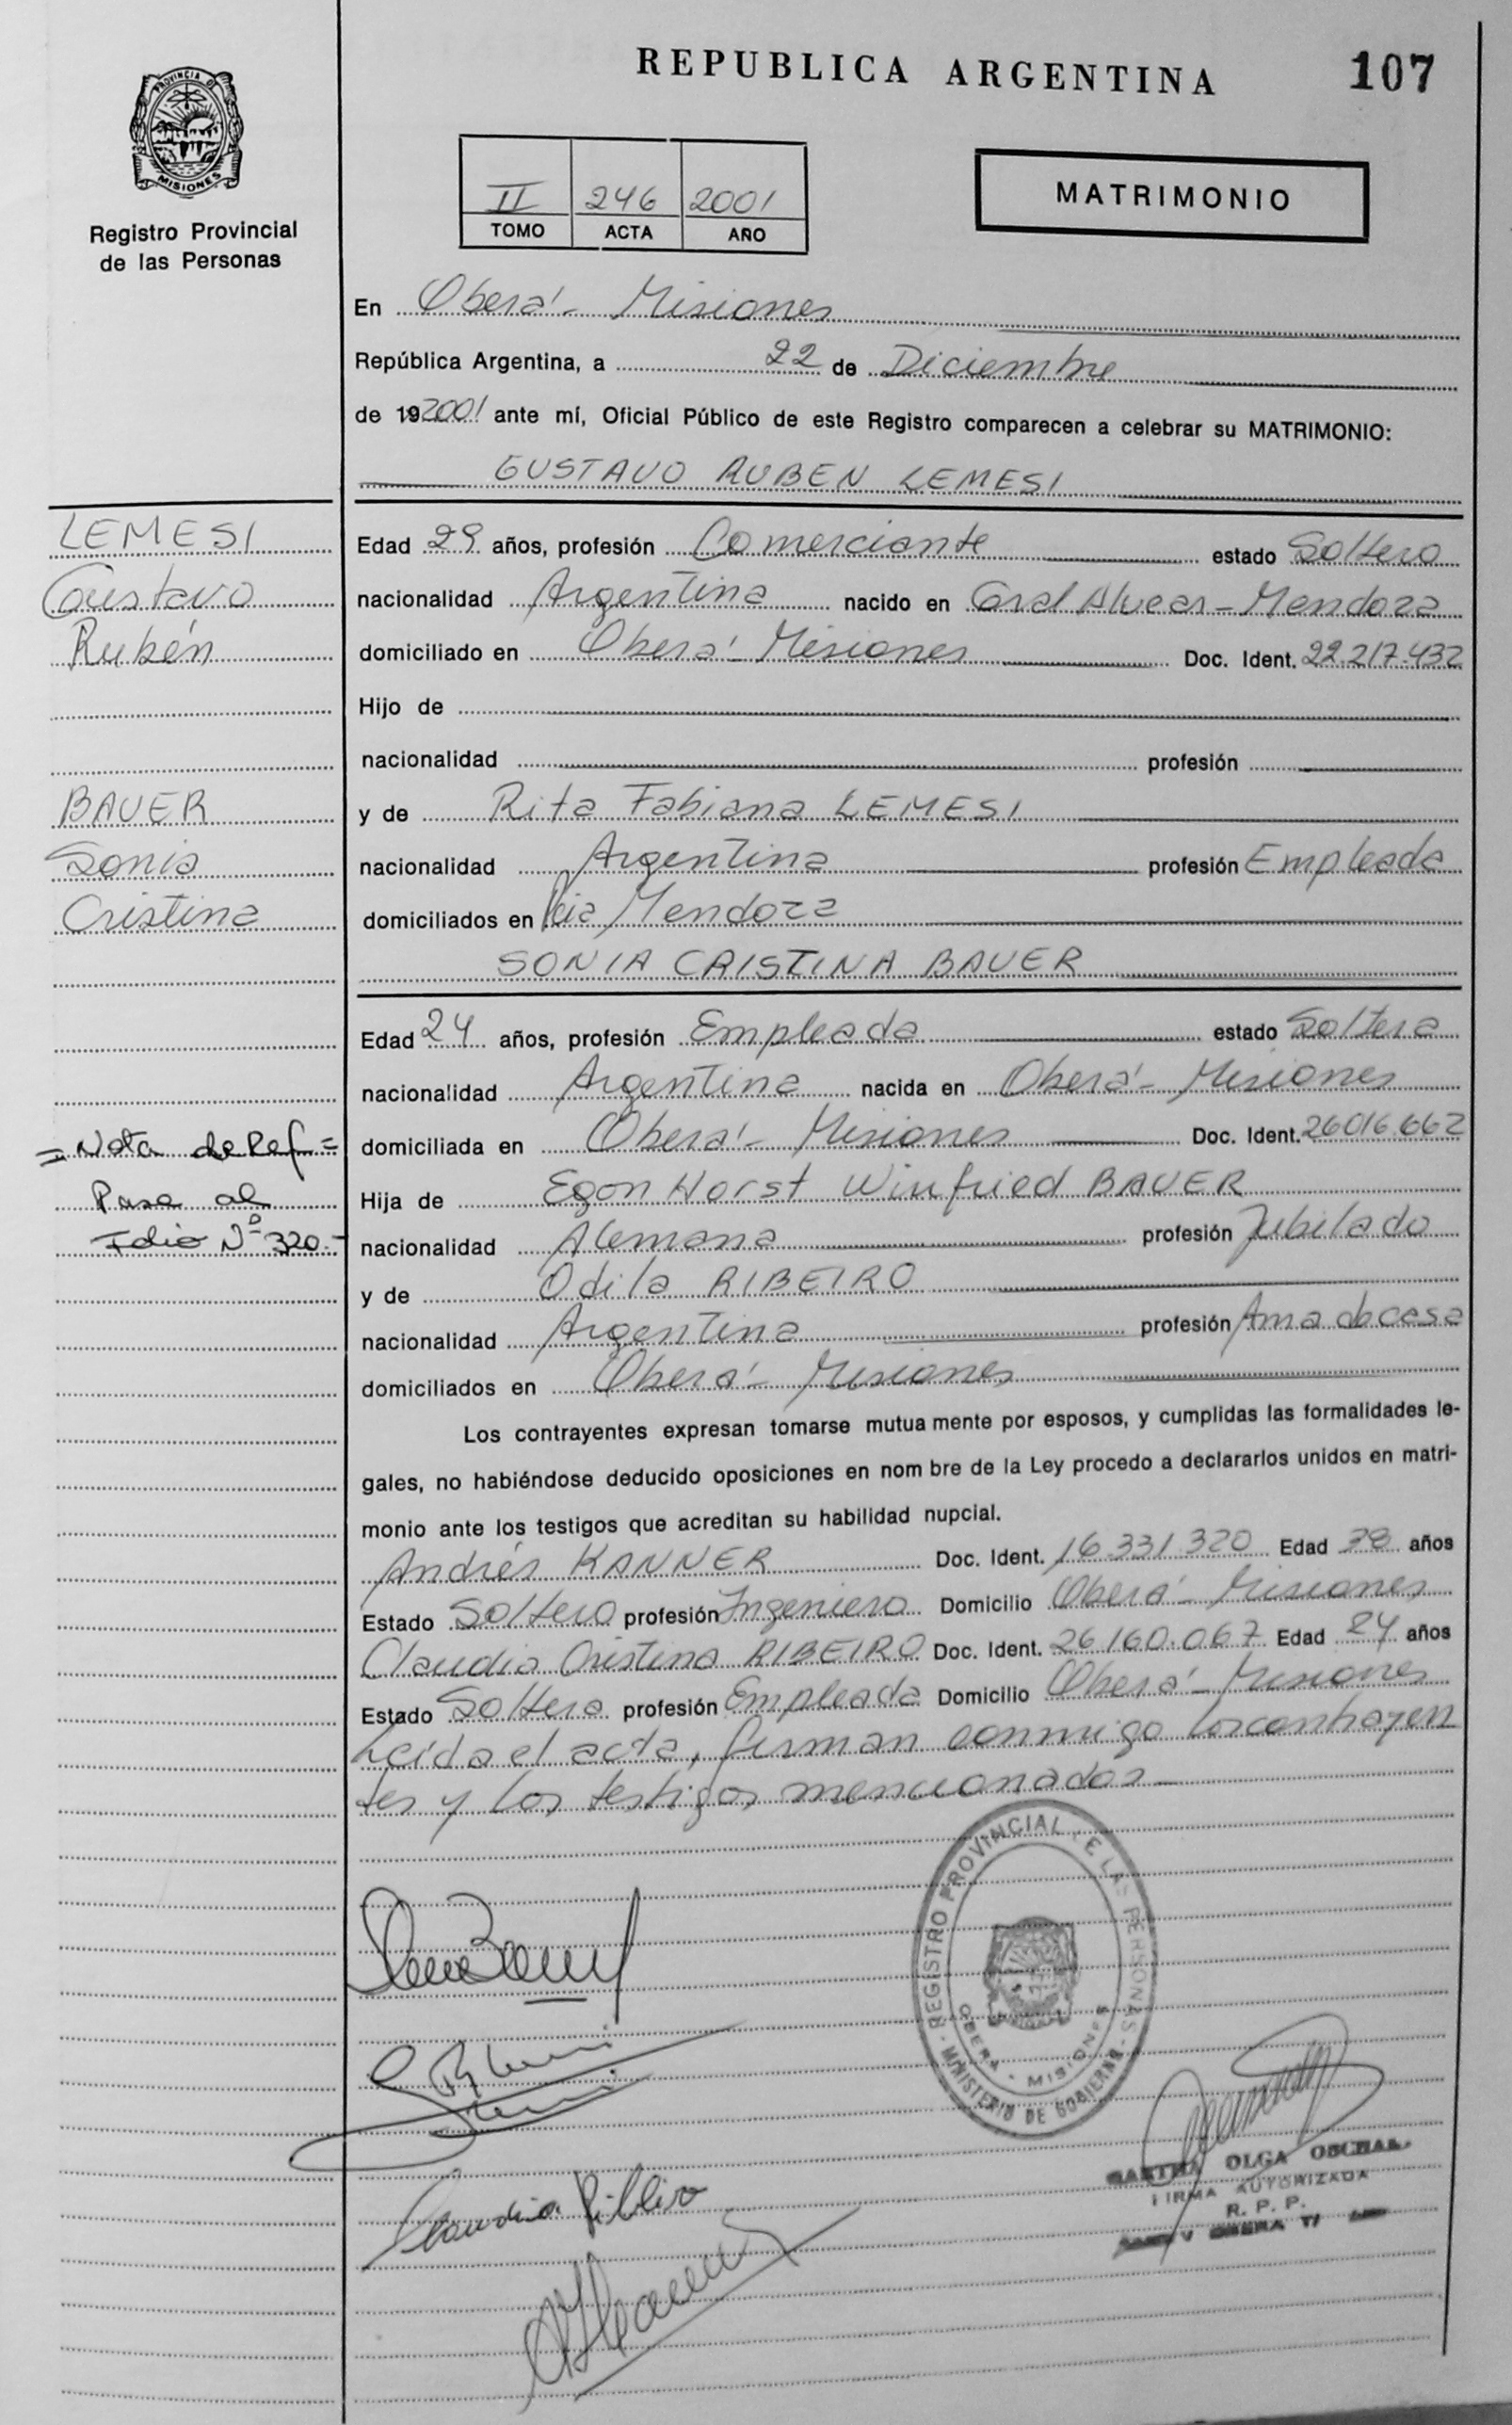 REPUBLICA ARGENTINA
107
PROVINCIA DE
MISIONES
Registro Provincial
de las Personas
II 246 2001
TOMO ACTA AÑO
MATRIMONIO
En Oberá - Misiones
República Argentina, a 22 de Diciembre
de 19 2001 ante mí, Oficial Público de este Registro comparecen a celebrar su MATRIMONIO:
GUSTAVO RUBEN LEMESI
LEMESI
Gustavo
Rubén
Edad 29 años, profesión Comerciante estado Soltero
nacionalidad Argentina nacido en Gral Alvear - Mendoza
domiciliado en Oberá - Misiones Doc. Ident. 22.217.432
Hijo de
nacionalidad profesión
BAUER
Sonia
Cristina
y de Rita Fabiana LEMESI
nacionalidad Argentina profesión Empleada
domiciliados en Pcia Mendoza
SONIA CRISTINA BAUER
Edad 24 años, profesión Empleada estado Soltera
nacionalidad Argentina nacida en Oberá - Misiones
domiciliada en Oberá - Misiones Doc. Ident. 26016.662
= Nota de Ref =
Pasa al
Folio Nº 320.-
Hija de Egon Horst Winfried BAUER
nacionalidad Alemana profesión Jubilado
y de Odila RIBEIRO
nacionalidad Argentina profesión Ama de casa
domiciliados en Oberá - Misiones
Los contrayentes expresan tomarse mutua mente por esposos, y cumplidas las formalidades le-
gales, no habiéndose deducido oposiciones en nom bre de la Ley procedo a declararlos unidos en matri-
monio ante los testigos que acreditan su habilidad nupcial.
Andrés KANNER Doc. Ident. 16.331.320 Edad 38 años
Estado Soltero profesión Ingeniero Domicilio Oberá - Misiones
Claudia Cristina RIBEIRO Doc. Ident. 26.160.067 Edad 24 años
Estado Soltera profesión Empleada Domicilio Oberá - Misiones
Leída el acta, firman conmigo los contrayen
tes y los testigos mencionados -
REGISTRO PROVINCIAL DE LAS PERSONAS
OBERA - MISIONES
MINISTERIO DE GOBIERNO
Claudia Ribeiro
OLGA
FIRMA AUTORIZADA
R. P. P.
OBERA